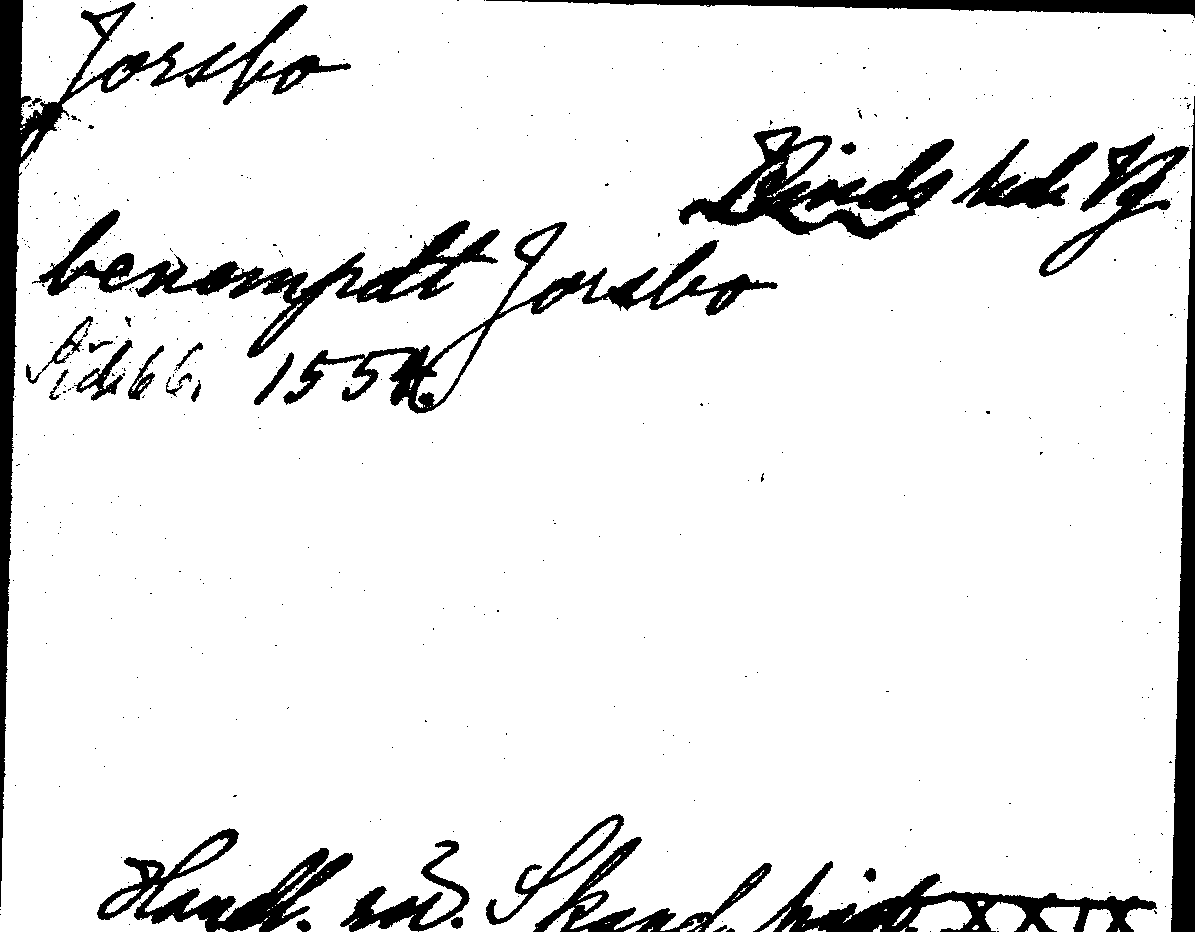 Jorsbo
Kinds hd. Vg.
benempdt Jorsbo
Sid. 66. 1554.
Handl. rör. Skand. hist. XXIX